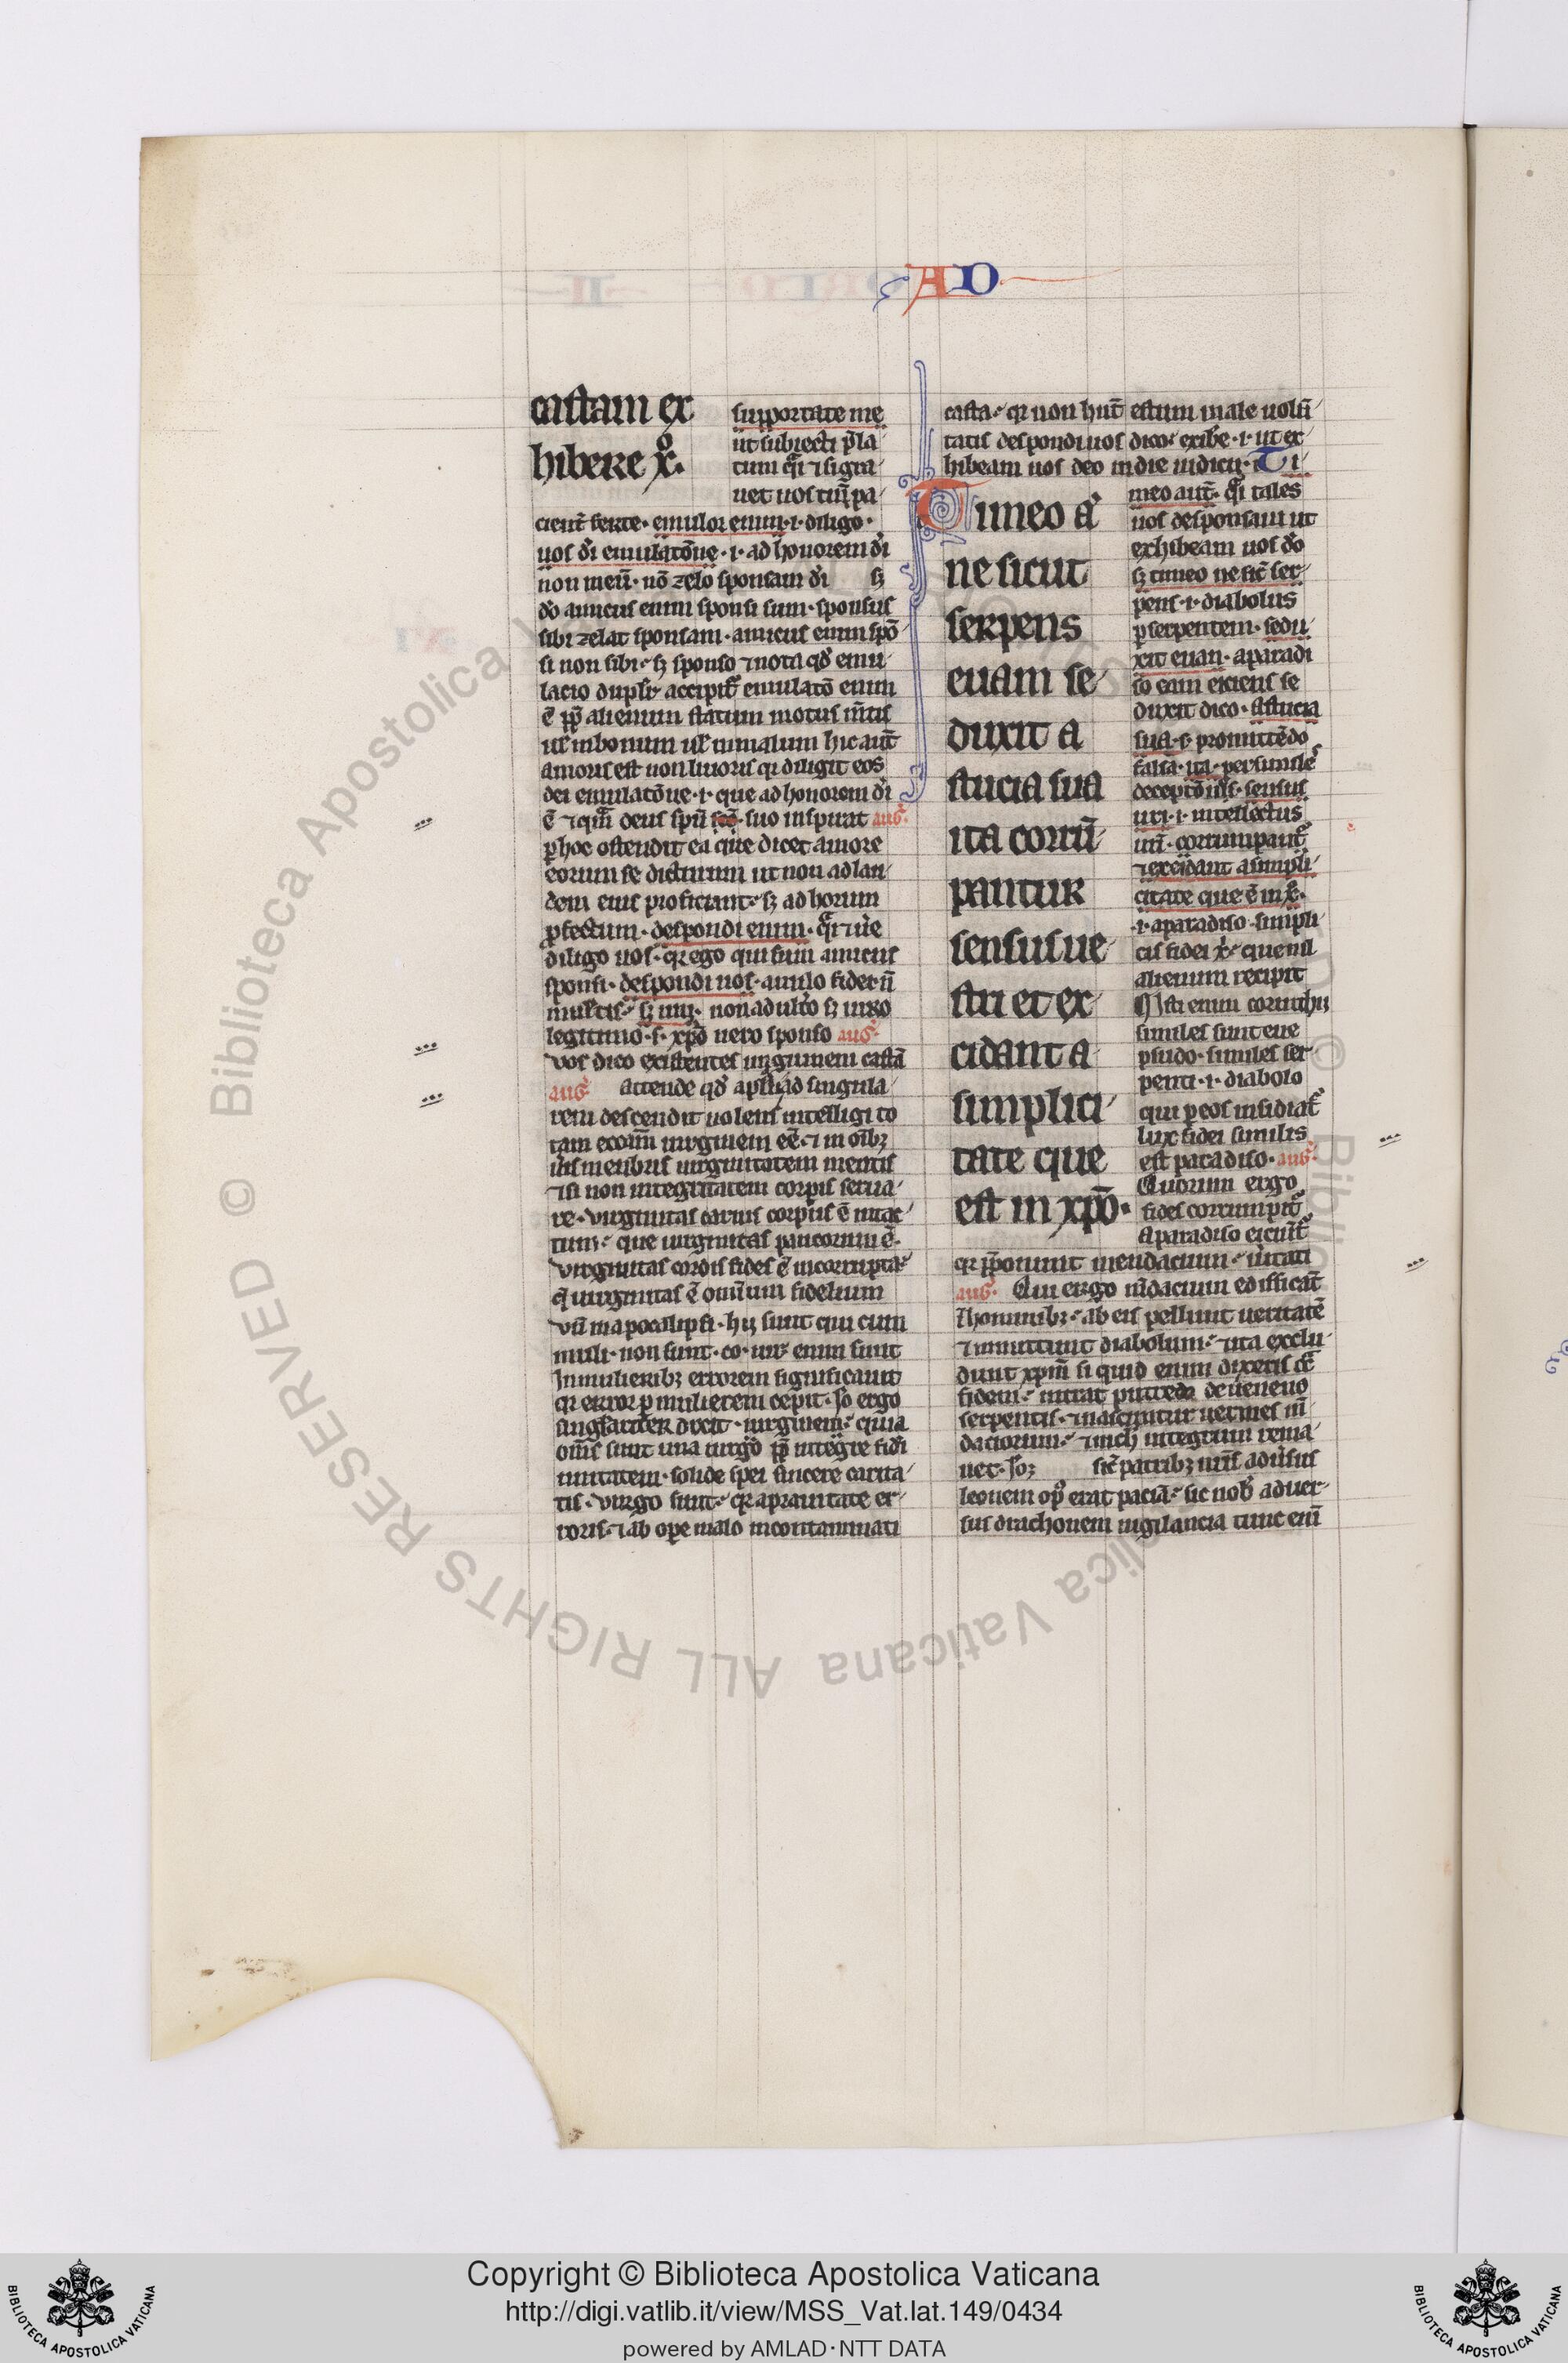 AD
castam ex
hibere x͛o.
supportate me
ut subiecti p̄la
tum q̄i ⁊ si gra
uet uos
cient̄ ferte · emulor enim · i · diligo ·
uos d̓i emulatōne · i · ad honorem d̓i
non meū · nō zelo sponsam d̓i sꝫ
d̓o amicus enim sponsi sum · sponsus
sibi zelat sponsam · amicus enim spō
si non sibi · sꝫ sponso ⁊ nota qd̓ emu
lacio duplr̓ accipit᷑ emulatō enim
ē ꝓp̄ alienum statum motus m̄tis
ul̓ in bonum ul̓ in malum hic aut̄
amoris est non liuoris qr diligit eos
dei emulatōne · i · que ad honorem d̓i
ē ⁊ deus spū suo inspirat aug̓
ꝑ hoc ostendit ea que dicet amore
eorum se dicturum ut non ad lau
dem eius proficiant · sꝫ ad horum
ꝓfectum · despondi enim · u̓e
diligo uos · qr ego qui sum amicus
sponsi · despondi uos · anulo fidei n̄
multis · sꝫ uni · non adult̓o sꝫ uiro
legitimo · s · xp̄o uero sponso aug̓
vos dico existentes uirginem castā
aug̓ attende qd̓ apl̓s ad singula
rem descendit uolens intelligi to
tam ecc̄am uirginem eē · ⁊ in oībꝫ
u̓is menbris uirginitatem mentis
⁊ si non integritatem corpīs serua
re · virginitas carnis corpus ē intac
tum · que uirginitas paucorum ē ·
virginitas cordis fides ē incorrupta
q̄ uirginitas ē omīum fidelium
vn̄ in apocalipsi · hij sunt qui cum
muli · non sunt · co · uir̓ enim sunt
In mulieribꝫ errorem significauit
qr error ꝑ mulierem cepit · Jo ergo
singlariter dixit · uirginem · quia
om̄s sunt una uirgo ꝓp̄ integre fidi
unitatem · solide spei sincere carita
tis · virgo sunt · qr a prauitate er
roris · ⁊ ab ope malo incontaminati
casta · qr non hn̄t estum male uolū
tatis despondi uos dico · exibe · i · ut ex
hibeam uos deo in die iudicij · Ti
Timeo a̓
ne sicut
serpens
euam se
duxit a
stucia sua
ita corrū
pantur
sensus ue
stri et ex
cidant a
simplici
tate que
est in xp̄o ·
meo aut̄ · q̄i tales
uos desponsaui ut
exhibeam uos d̓o
sꝫ timeo ne sic̄ ser
pens · i · diabolus
ꝑ serpentem · sedu
xit euan · a paradi
so eam eiciens se
duxit dico · astucia
sua · s · promittēdo
falsa · ita · per simile᷒
deceptōnis · sensus
uri · i · intellectus
uri · corrumpant᷑
⁊ excidant a simpli
citate que ē in x̄o ·
· i · a paradiso simpli
cis fidei x̄i · que nil
alienum recipit
Isti enim corinthij
similes sunt eue
psudo · similes ser
penti · i · diabolo
qui ꝑ eos insidiat᷑
lux fidei similis
est paradiso · aug̓
Quorum ergo
fides corrumpit᷑
a paradiso eiciunt᷑
qr p̄ponunt mendacium · u̓itati
aug̓ · Qui ergo m̄dacium edifficāt
I hominibꝫ · ab eis pellunt ueritatē
⁊ inmittunt diabolum · ⁊ ita exclu
dunt xp̄m si quid enim dixeris
fidem · intrat putredo de ueneno
serpentis · ⁊ nascuntur uermes m̄
daciorum · ⁊ nich̓ integrum rema
net · Joꝫ sic̄ patribꝫ nr̄is adu̓sus
leonem op᷒ erat paciā · sic nob̓ aduer
sus drachonem uigilancia tunc enī
Copyright © Biblioteca Apostolica Vaticana
http://digi.vatlib.it/view/MSS_Vat.lat.149/0434
powered by AMLAD · NTT DATA
BIBLIOTECA APOSTOLICA VATICANA
BIBLIOTECA APOSTOLICA VATICANA
© Biblioteca Apostolica Vaticana ALL RIGHTS RESERVED